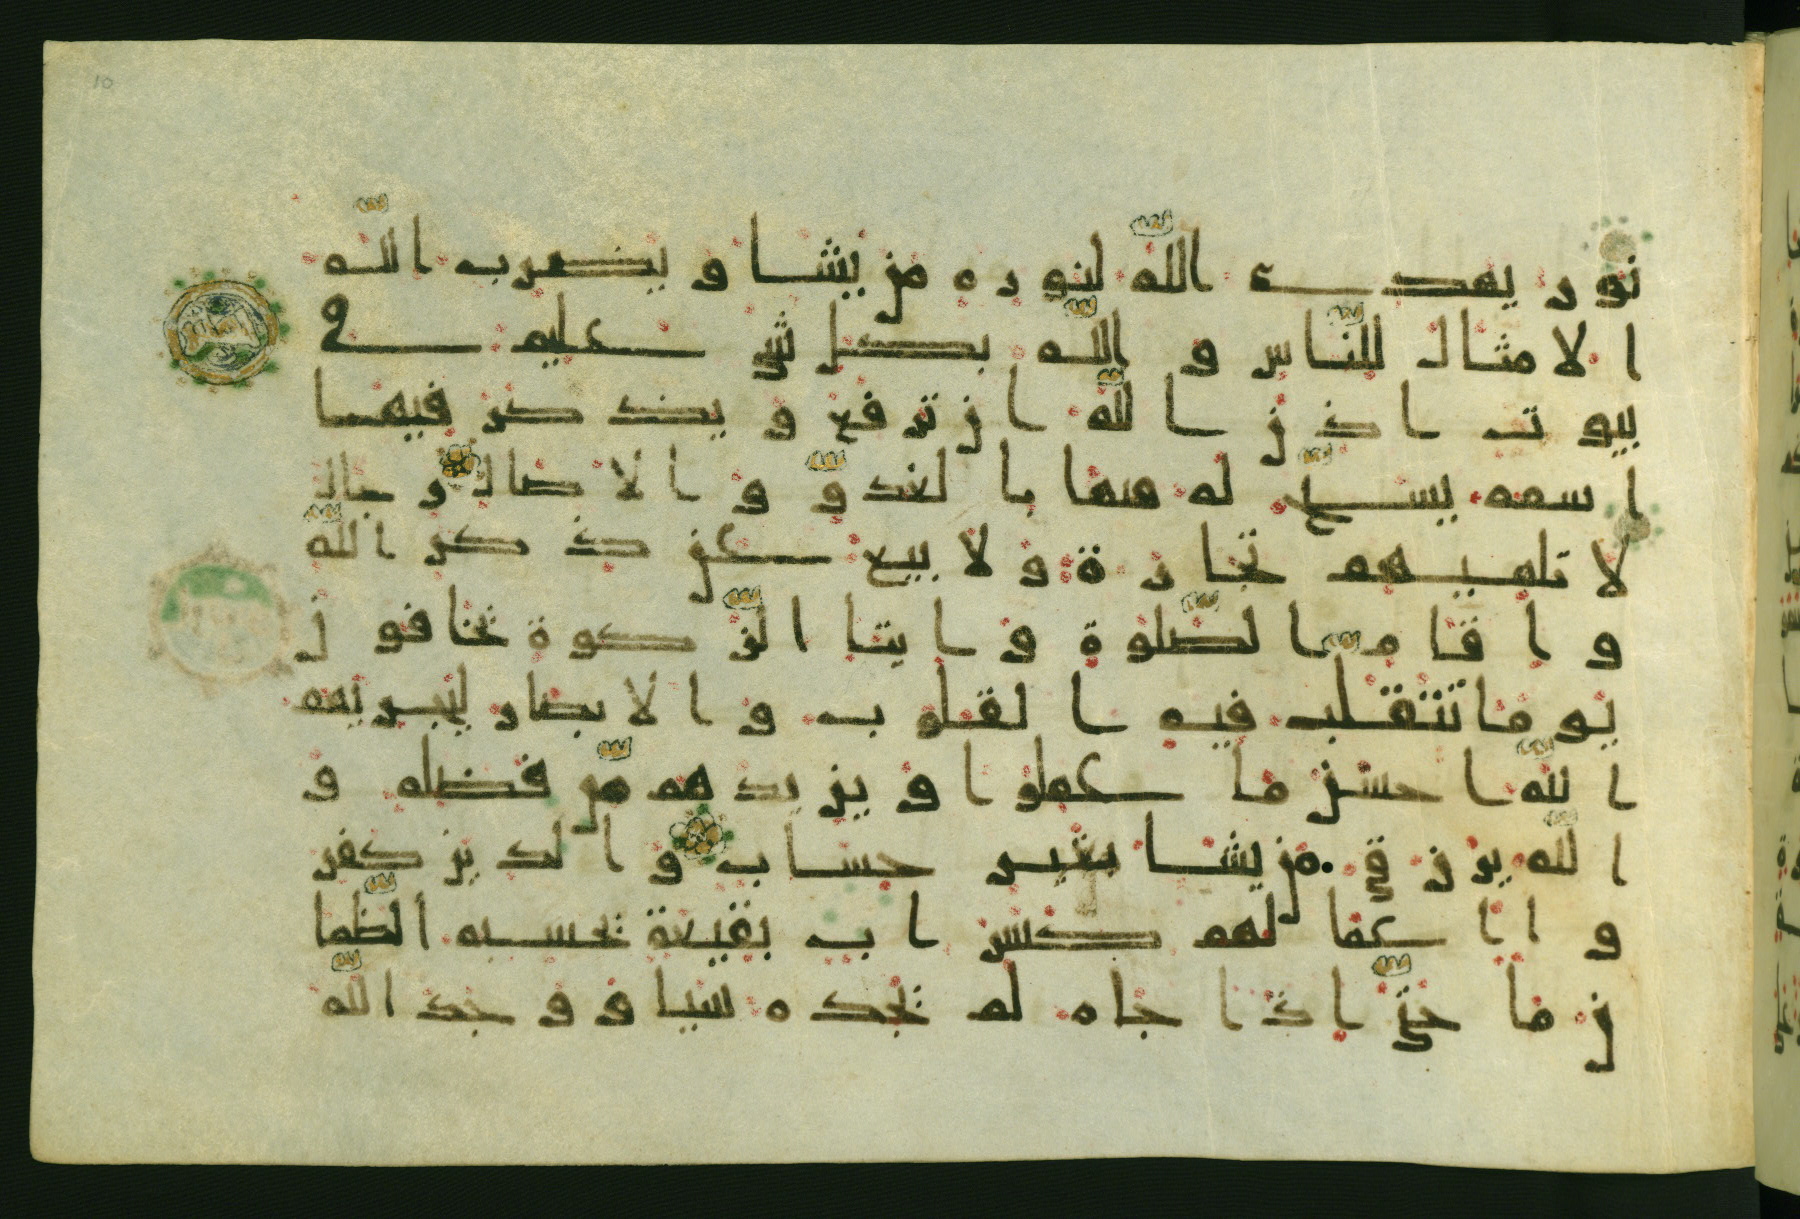 نور يهدي الله لنوره من يشا ويضرب الله
الامثال للناس والله بكل شي عليم في
بيوت اذن الله ان ترفع ويذكر فيها
اسمه يسبح له فيها بالغدو والاصال رجال
لا تلهيهم تجارة ولا بيع عن ذكر الله
واقام الصلوة وايتا الزكوة يخافون
يوما تتقلب فيه القلوب والابصار ليجزيهم
الله احسن ما عملوا ويزيدهم من فضله و
الله يرزق من يشا بغير حساب والذين كفر
وا اعملهم كسراب بقيعة يحسبه الظما
ن ما حتى اذا جاه لم يجده شيا ووجد الله
10